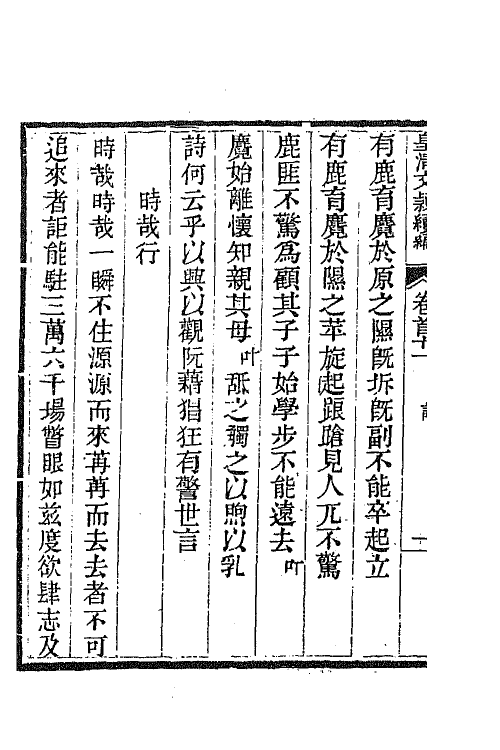 皇清文潁續編 卷首十一 詩
有鹿育麑於原之隰旣坼旣副不能卒起立
有鹿育麑於隰之苹旋起踉蹌見人兀不驚
鹿匪不驚爲顧其子子始學步不能遠去叶
麑始離懷知親其母叶舐之觸之以煦以乳
詩何云乎以興以觀阮藉猖狂有警世言
時哉行
時哉時哉一瞬不住源源而來苒苒而去去者不可
追來者詎能駐三萬六千場瞥眼如玆度欲肆志及